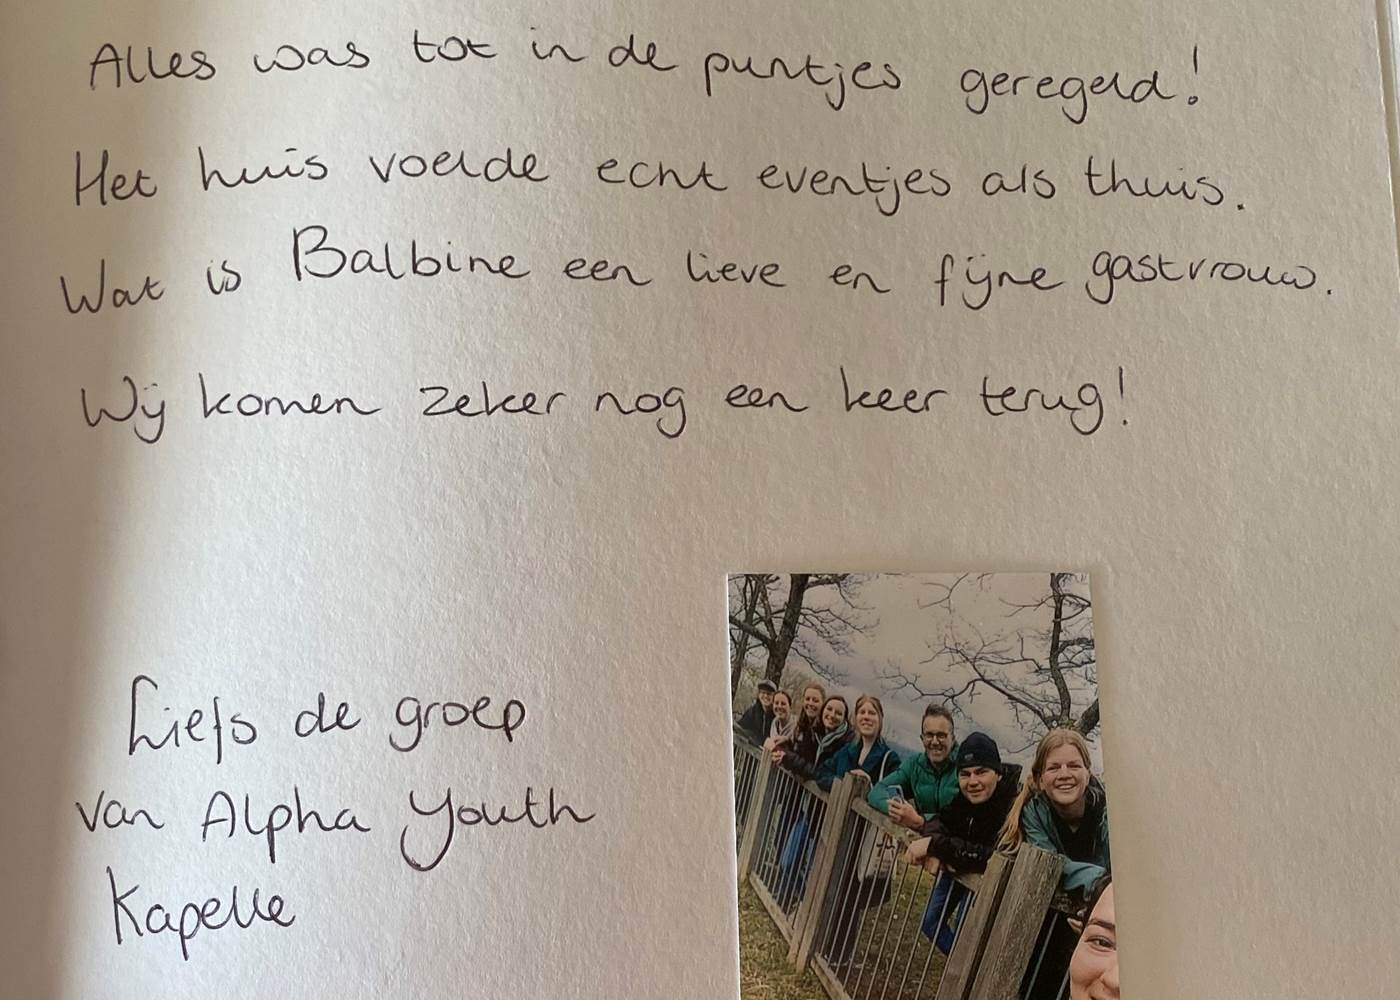 Alles was tot in de puntjes geregeld!
Het huis voelde echt eventjes als thuis.
Wat is Balbine een lieve en fijne gastvrouw.
Wij komen zeker nog een keer terug!
Liefs de groep
van Alpha Youth
Kapelle